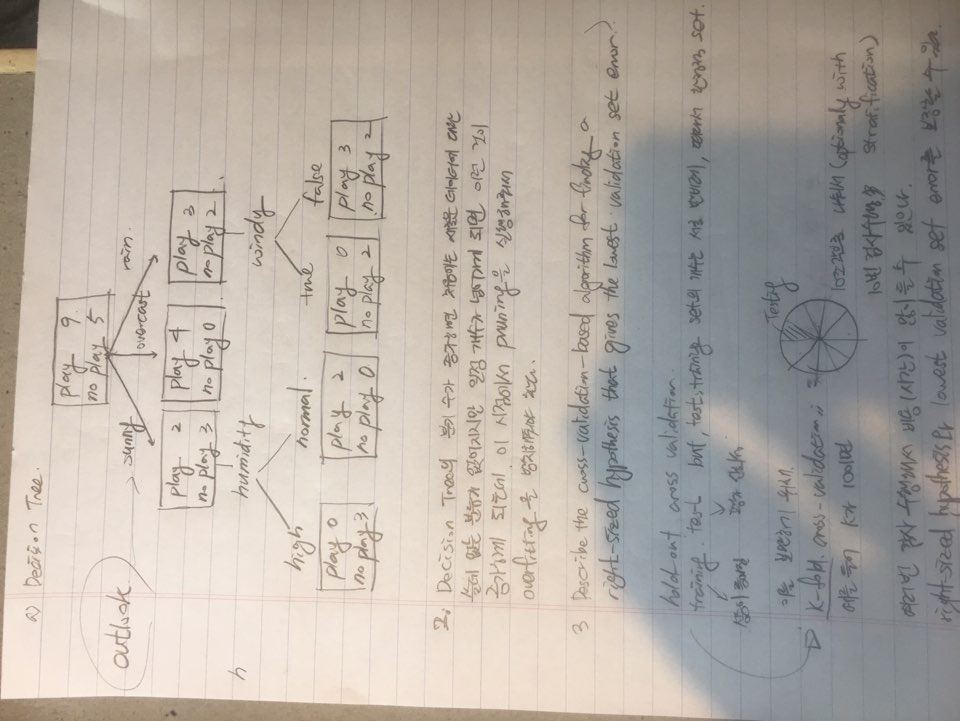 a) Decision Tree.
play 9
no play 5
outlook
sunny overcast rain.
play 2 play 4 play 3
no play 3 no play 0 no play 2
humidity windy
high normal. true false
play 0 play 2 play 0 play 3
no play 3 no play 0 no play 2 no play 2
2. Decision Tree의 분기 수가 증가하면 처음에는 새로운 데이터에 대한
쓸데 없는 분류가 없어지지만 일정 개수가 넘어가게 되면 이런 것이
증가하게 되는데, 이 시점에서 pruning을 실행해줘서
overfitting을 방지해줘야 한다.
3 Describe the cross-validation-based algorithm for finding a
right-sized hypothesis that gives the lowest validation set error.
hold out cross validation.
training. test but, test, training set의 개수는 서로 반비례, 따라서 한정적 set.
성능이 평가 신뢰
이를 보완하기 위해.
Testing
K-fold. cross-validation
예를 들어 K가 10이면
10조각으로 나눠서 (optionaly with
10번 검사수행 stratification)
여러번 검사 수행해서 비용(시간)이 많이들 수 있으나.
right-sized hypothesis와 lowest validation set error를 보장할 수 있다.